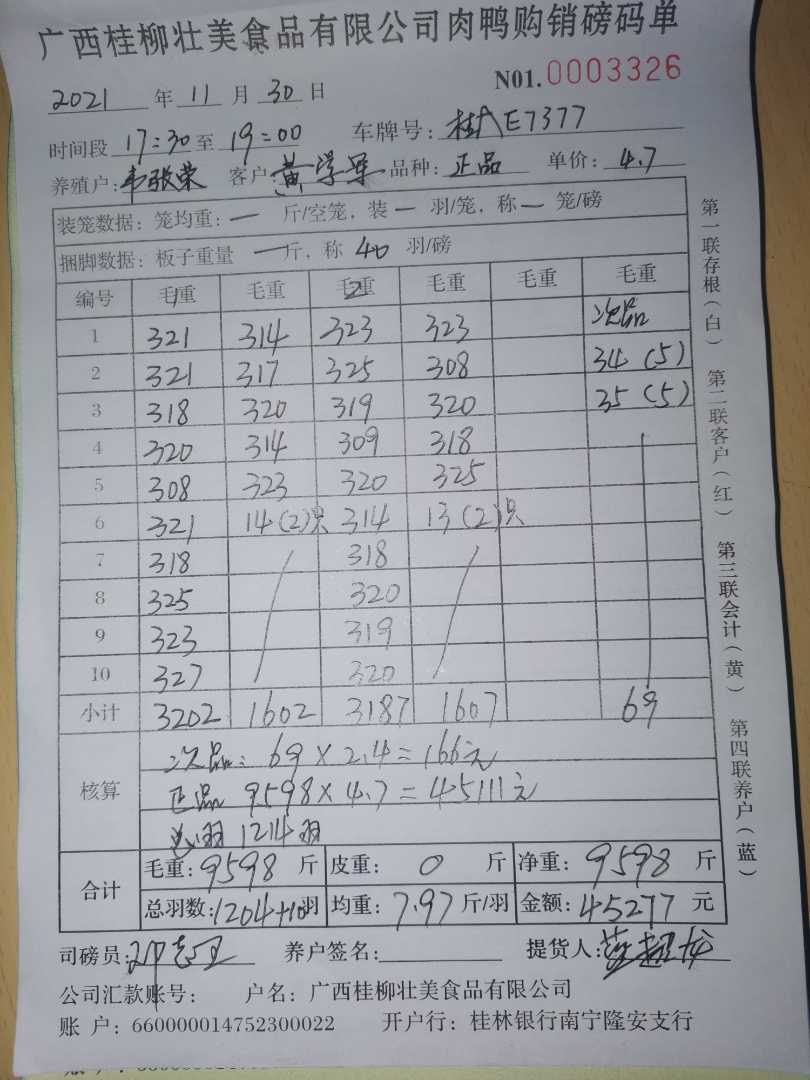 广西桂柳壮美食品有限公司肉鸭购销磅码单
2021 年 11 月 30 日 N01.0003326
时间段 17:30 至 19:00 车牌号: 桂AE7377
养殖户: 韦张荣 客户: 黄学军 品种: 正品 单价: 4.7
装笼数据: 笼均重: 一 斤/空笼, 装 一 羽/笼, 称 一 笼/磅
捆脚数据: 板子重量 一 斤, 称 40 羽/磅
编号 毛重 1 毛重 毛重 2 毛重 毛重 毛重
1 321 314 323 323 次品
2 321 317 325 308 34 (5)
3 318 320 319 320 35 (5)
4 320 314 309 318
5 308 323 320 325
6 321 14(2)只 314 13(2)只
7 318 318
8 325 320
9 323 319
10 327 320
小计 3202 1602 3187 1607 69
核算
次品: 69×2.4=166元
正品 9598×4.7=45111元
总羽 1214羽
合计
毛重: 9598 斤 皮重: 0 斤 净重: 9598 斤
总羽数: 1204+10羽 均重: 7.97 斤/羽 金额: 45277 元
司磅员: 养户签名: 提货人:
公司汇款账号: 户名: 广西桂柳壮美食品有限公司
账 户: 660000014752300022 开户行: 桂林银行南宁隆安支行
第一联存根(白) 第二联客户(红) 第三联会计(黄) 第四联养户(蓝)